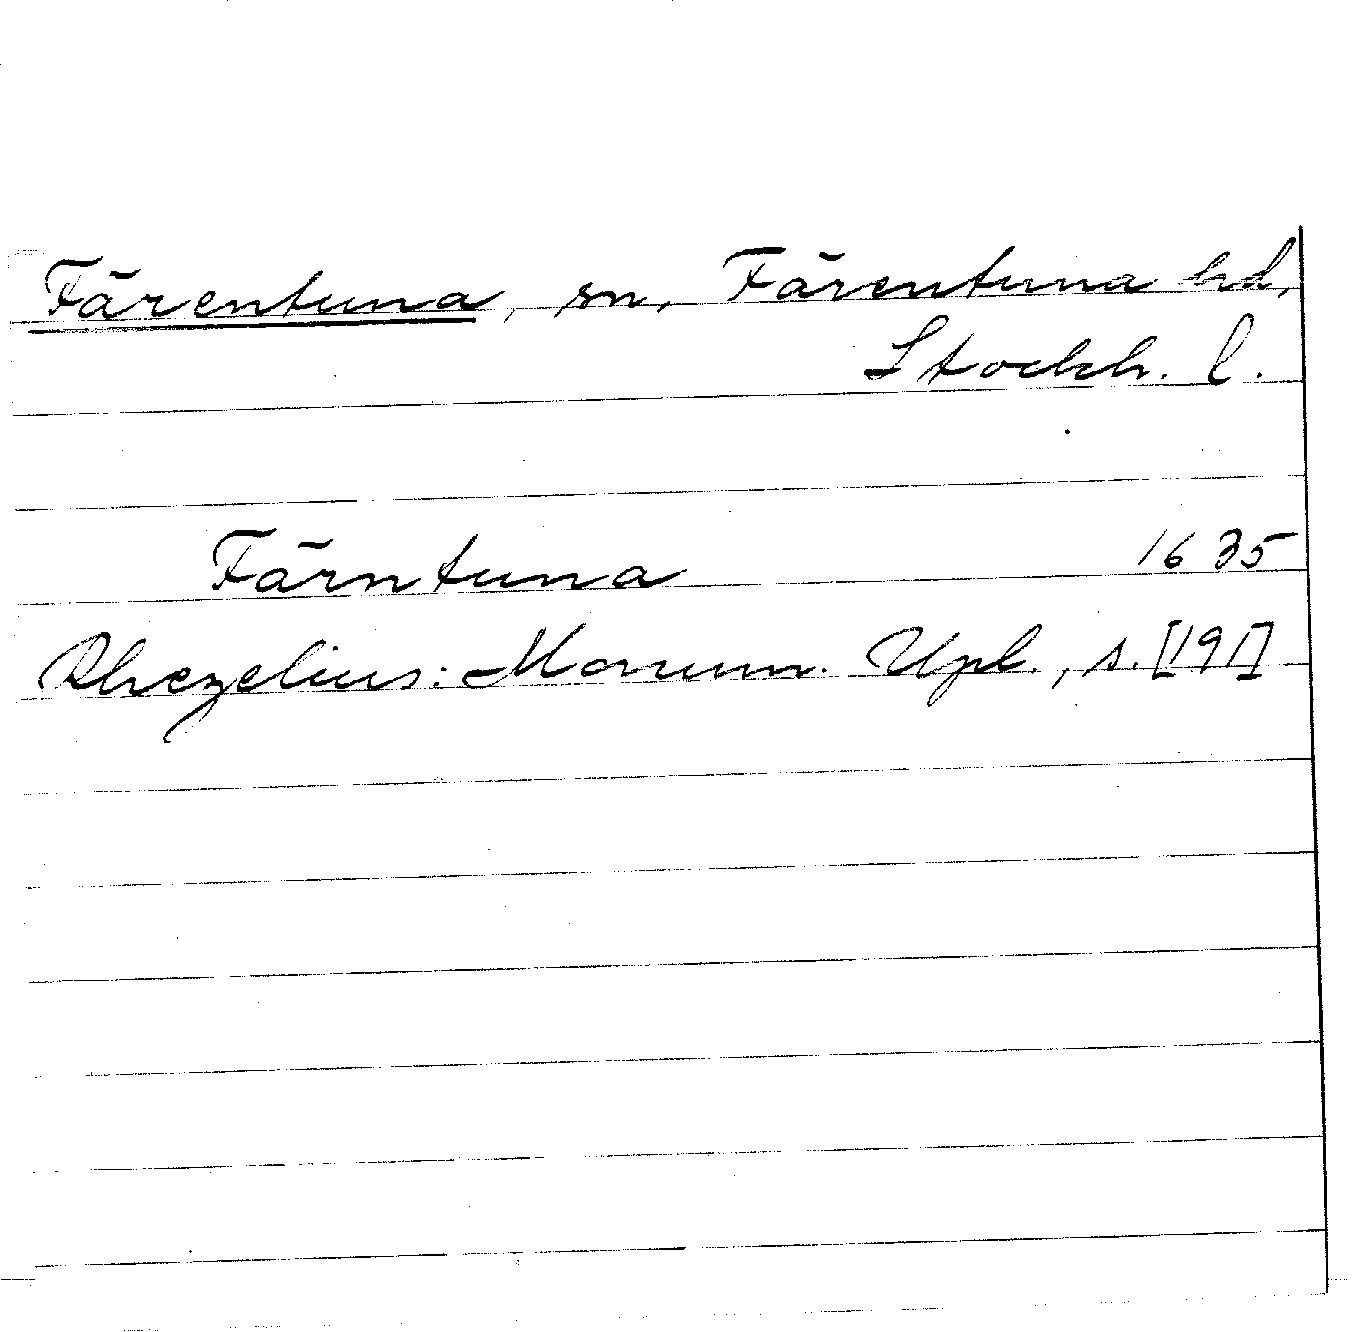 Färentuna, sn, Färentuna hd,
Stockh. l.
Färntuna 1635
Rhezelius: Monum. Upl., s. [191]